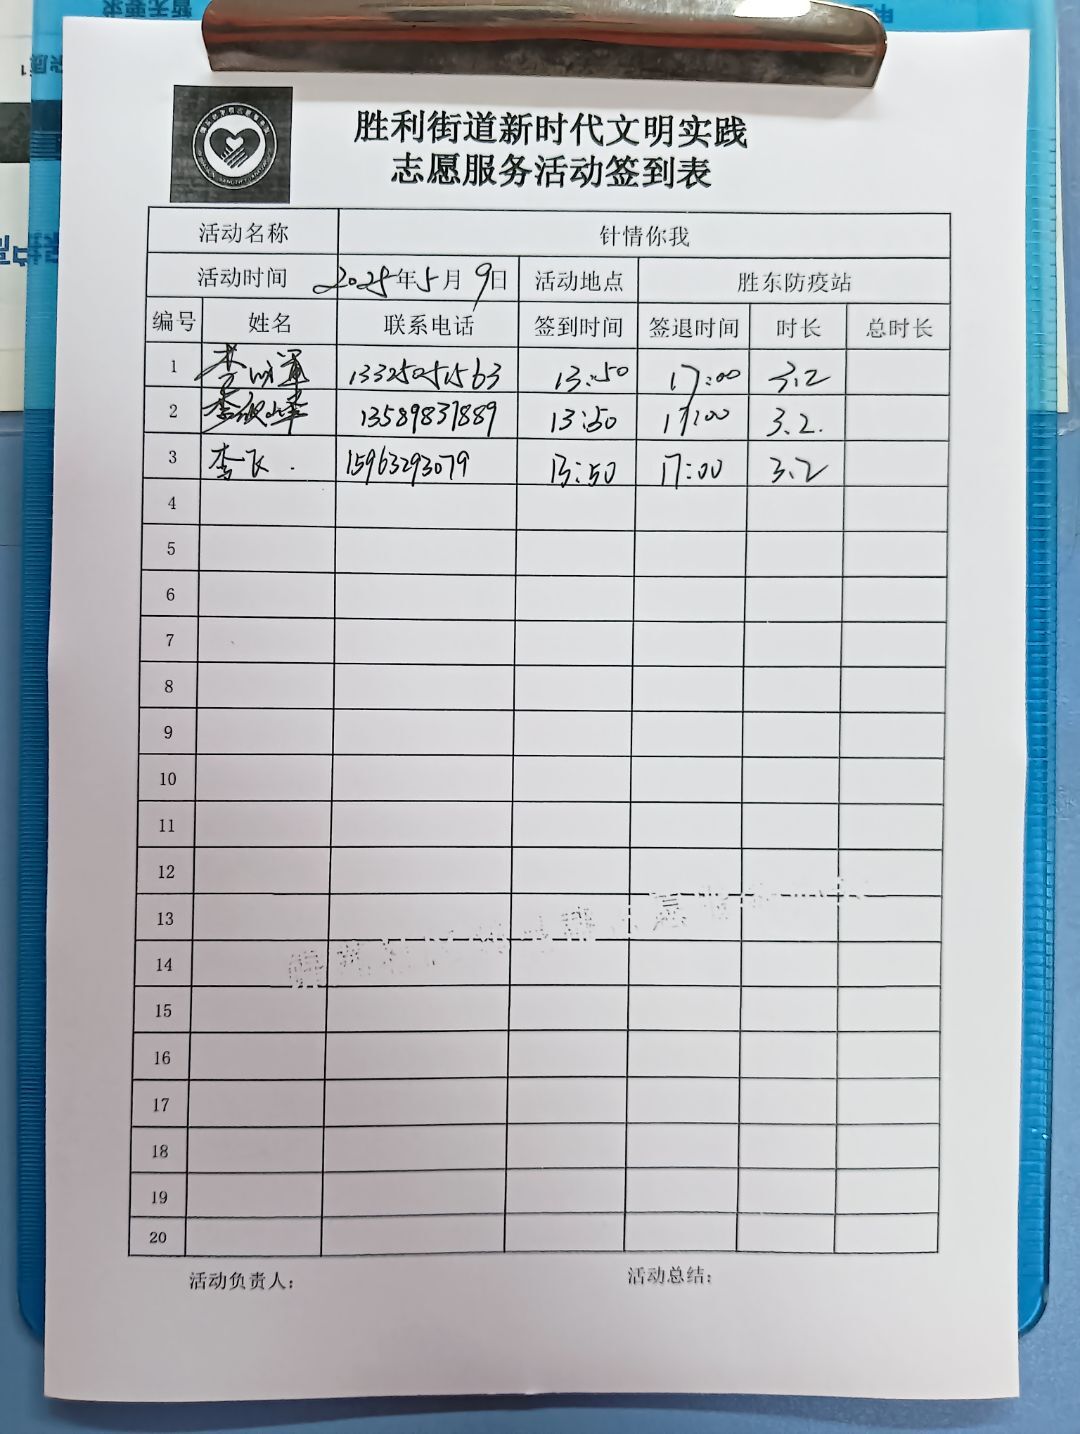 暂无要求
胜利街道新时代文明实践
志愿服务活动签到表
活动名称 针情你我
活动时间 2025年5月9日 活动地点 胜东防疫站
编号 姓名 联系电话 签到时间 签退时间 时长 总时长
1 李 13325051563 13:50 17:00 3.2
2 李 13589837889 13:50 17:00 3.2.
3 李飞. 15963293079 13:50 17:00 3.2
4
5
6
7
8
9
10
11
12
13
14
15
16
17
18
19
20
活动负责人： 活动总结：